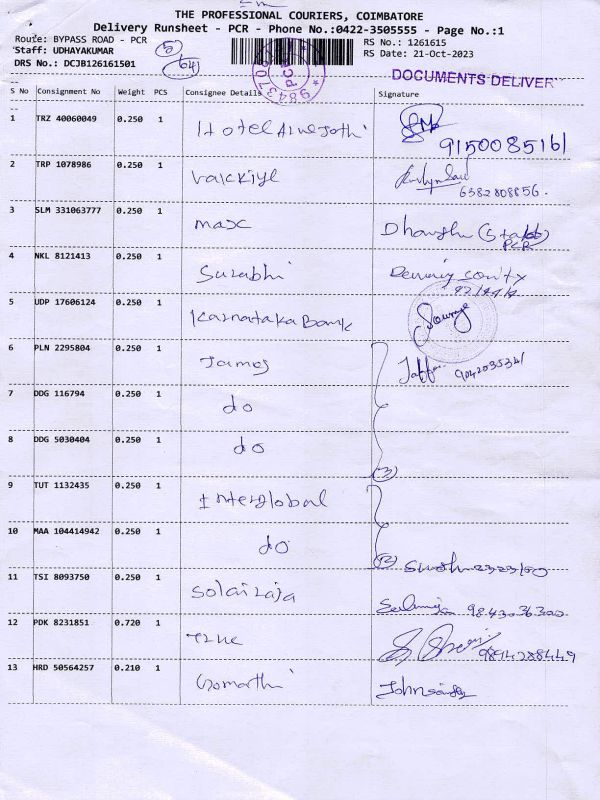 THE PROFESSIONAL COURIERS, COIMBATORE
Delivery Runsheet - PCR - Phone No.:0422-3505555 - Page No.:1
Route: BYPASS ROAD - PCR
RS No.: 1261615
Staff: UDHAYAKUMAR
5
RS Date: 21-Oct-2023
DRS No.: DCJB126161501
64
DOCUMENTS DELIVER
S No Consignment No Weight PCS Consignee Details Signature
1 TRZ 40060049 0.250 1 Hotel
9150085161
2 TRP 1078986 0.250 1 Valkiye
6382808856.
3 SLM 331063777 0.250 1 max Dhanushu (Staff)
PCR
4 NKL 8121413 0.250 1 Surabhi
5 UDP 17606124 0.250 1 Karnataka Bank Sourya
6 PLN 2295804 0.250 1 James Jaffar
7 DDG 116794 0.250 1 do
8 DDG 5030404 0.250 1 do
(3)
9 TUT 1132435 0.250 1 Interglobal
10 MAA 104414942 0.250 1 do
(2)
11 TSI 8093750 0.250 1 Solairaja
9843036300
12 PDK 8231851 0.720 1 True
9894288449
13 HRD 50564257 0.210 1 Gomathi